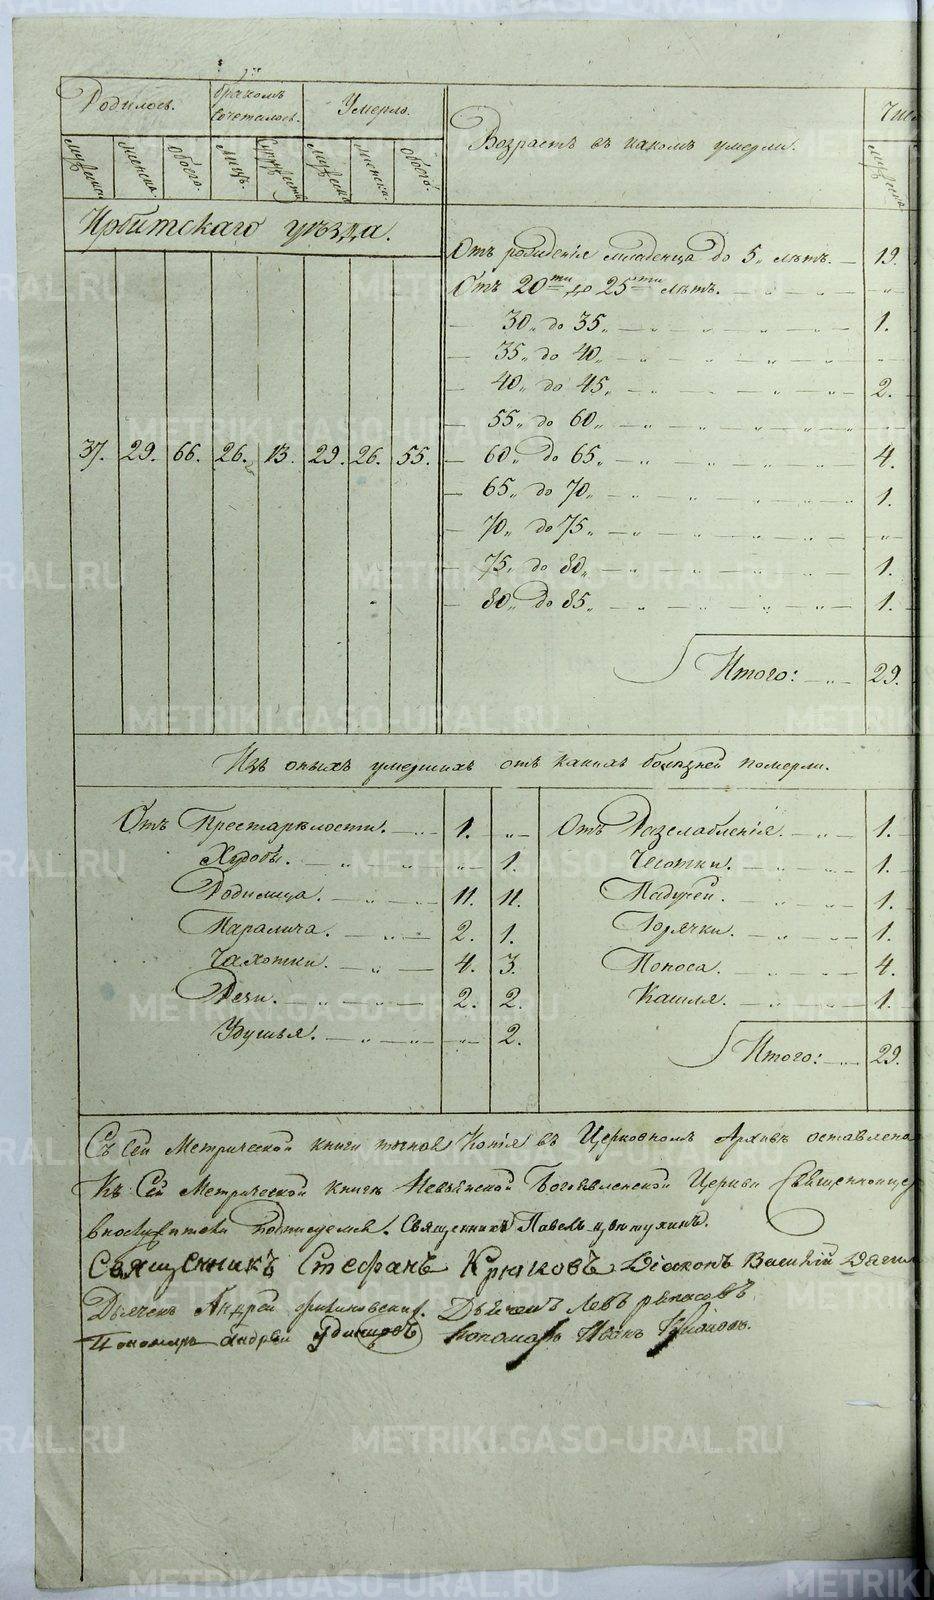 Родилось. Бракомъ сочеталось. Умерло. Возрастъ въ какомъ умерли.
мужеска женска. обоего. лицъ. мужеска женска. обоего. мужеска
Ирбитскаго уѣзда.
Отъ рожденія младенца до 5, лѣтъ. — 19.
Отъ 20ти до 25ти лѣтъ. — „ — „ — „
— 30, до 35, — „ — „ — „ — 1.
— 35, до 40, — „ — „ — „ — „
— 40, до 45, — „ — „ — „ — 2.
— 55, до 60, — „ — „ — „ — „
37. 29. 66. 26. 13. 29. 26. 55. — 60, до 65, — „ — „ — „ — 4.
— 65, до 70, — „ — „ — „ — 1.
— 70, до 75, — „ — „ — „ — „
— 75, до 80, — „ — „ — „ — 1.
— 80, до 85, — „ — „ — „ — 1.
Итого: — „ — 29.
Изъ оныхъ умершихъ отъ какихъ болѣзней померли.
Отъ Престарѣлости. — 1. „ Отъ Разслабленія. — „ — 1.
Худобы. — „ — „ 1. Чесотки. — „ — 1.
Родимца. — „ — 11. 11. — „ — 1.
Паралича. — „ — 2. 1. Горячки. — „ — 1.
Чахотки. — „ — 4. 3. Поноса. — „ — 4.
Рези. — „ — 2. 2. Кашля. — „ — 1.
Удушья. — „ — „ 2. Итого: — „ — 29.
Съ сей Метрической книги точная Копія въ Церковномъ Архивѣ оставлена
Къ Сей Метрической книгѣ Невьянской Богоявленской Церкви
Подписуемся. Священникъ Павелъ
Священникъ Стефанъ Крюковъ. Діаконъ Василій
Дьячекъ Андрей Дьячекъ Левъ
Пономарь Андрей Удинцовъ Пономарь Иванъ
METRIKI.GASO-URAL.RU